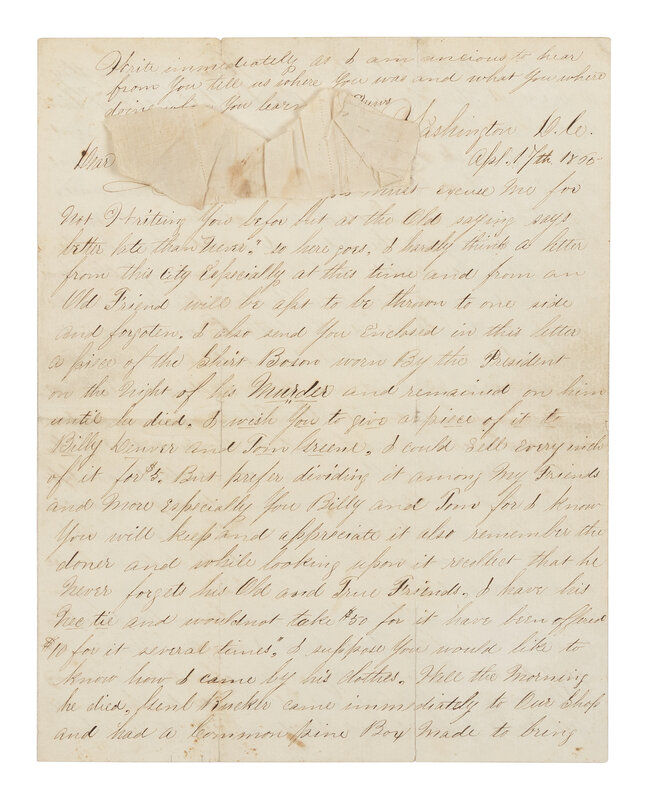 Write immediately as I am ancious to hear
from You tell us where You was and what You where
doing You learn News
Washington D.C.
Apl. 17th 1865
Dear
must excuse Me for
Not Writing You befor but as the Old saying says
better late than Never." so here goes. I hardly think a letter
from this City Especially at this time and from an
Old Friend will be apt to be thrown to one side
and forgoten. I also send You Enclosed in this letter
a piece of the Shirt Bosom worn By the President
on the Night of his Murder and remained on him
until he died. I wish You to give a piece of it to
Billy Denver and Tom Greene. I could Sell Every inch
of it for $5. But prefer dividing it among My Friends
and More Especially You Billy and Tom for I know
You will keep and appreciate it also remember the
doner and while looking upon it recollect that he
Never forgets his Old and True Friends. I have his
Nec tie and would not take $50 for it have been offred
$10 for it several times." I suppose You would like to
know how I came by his clothes. Well the Morning
he died. Genl Rucker came immediately to Our Shop
and had a Common Pine Box Made to bring